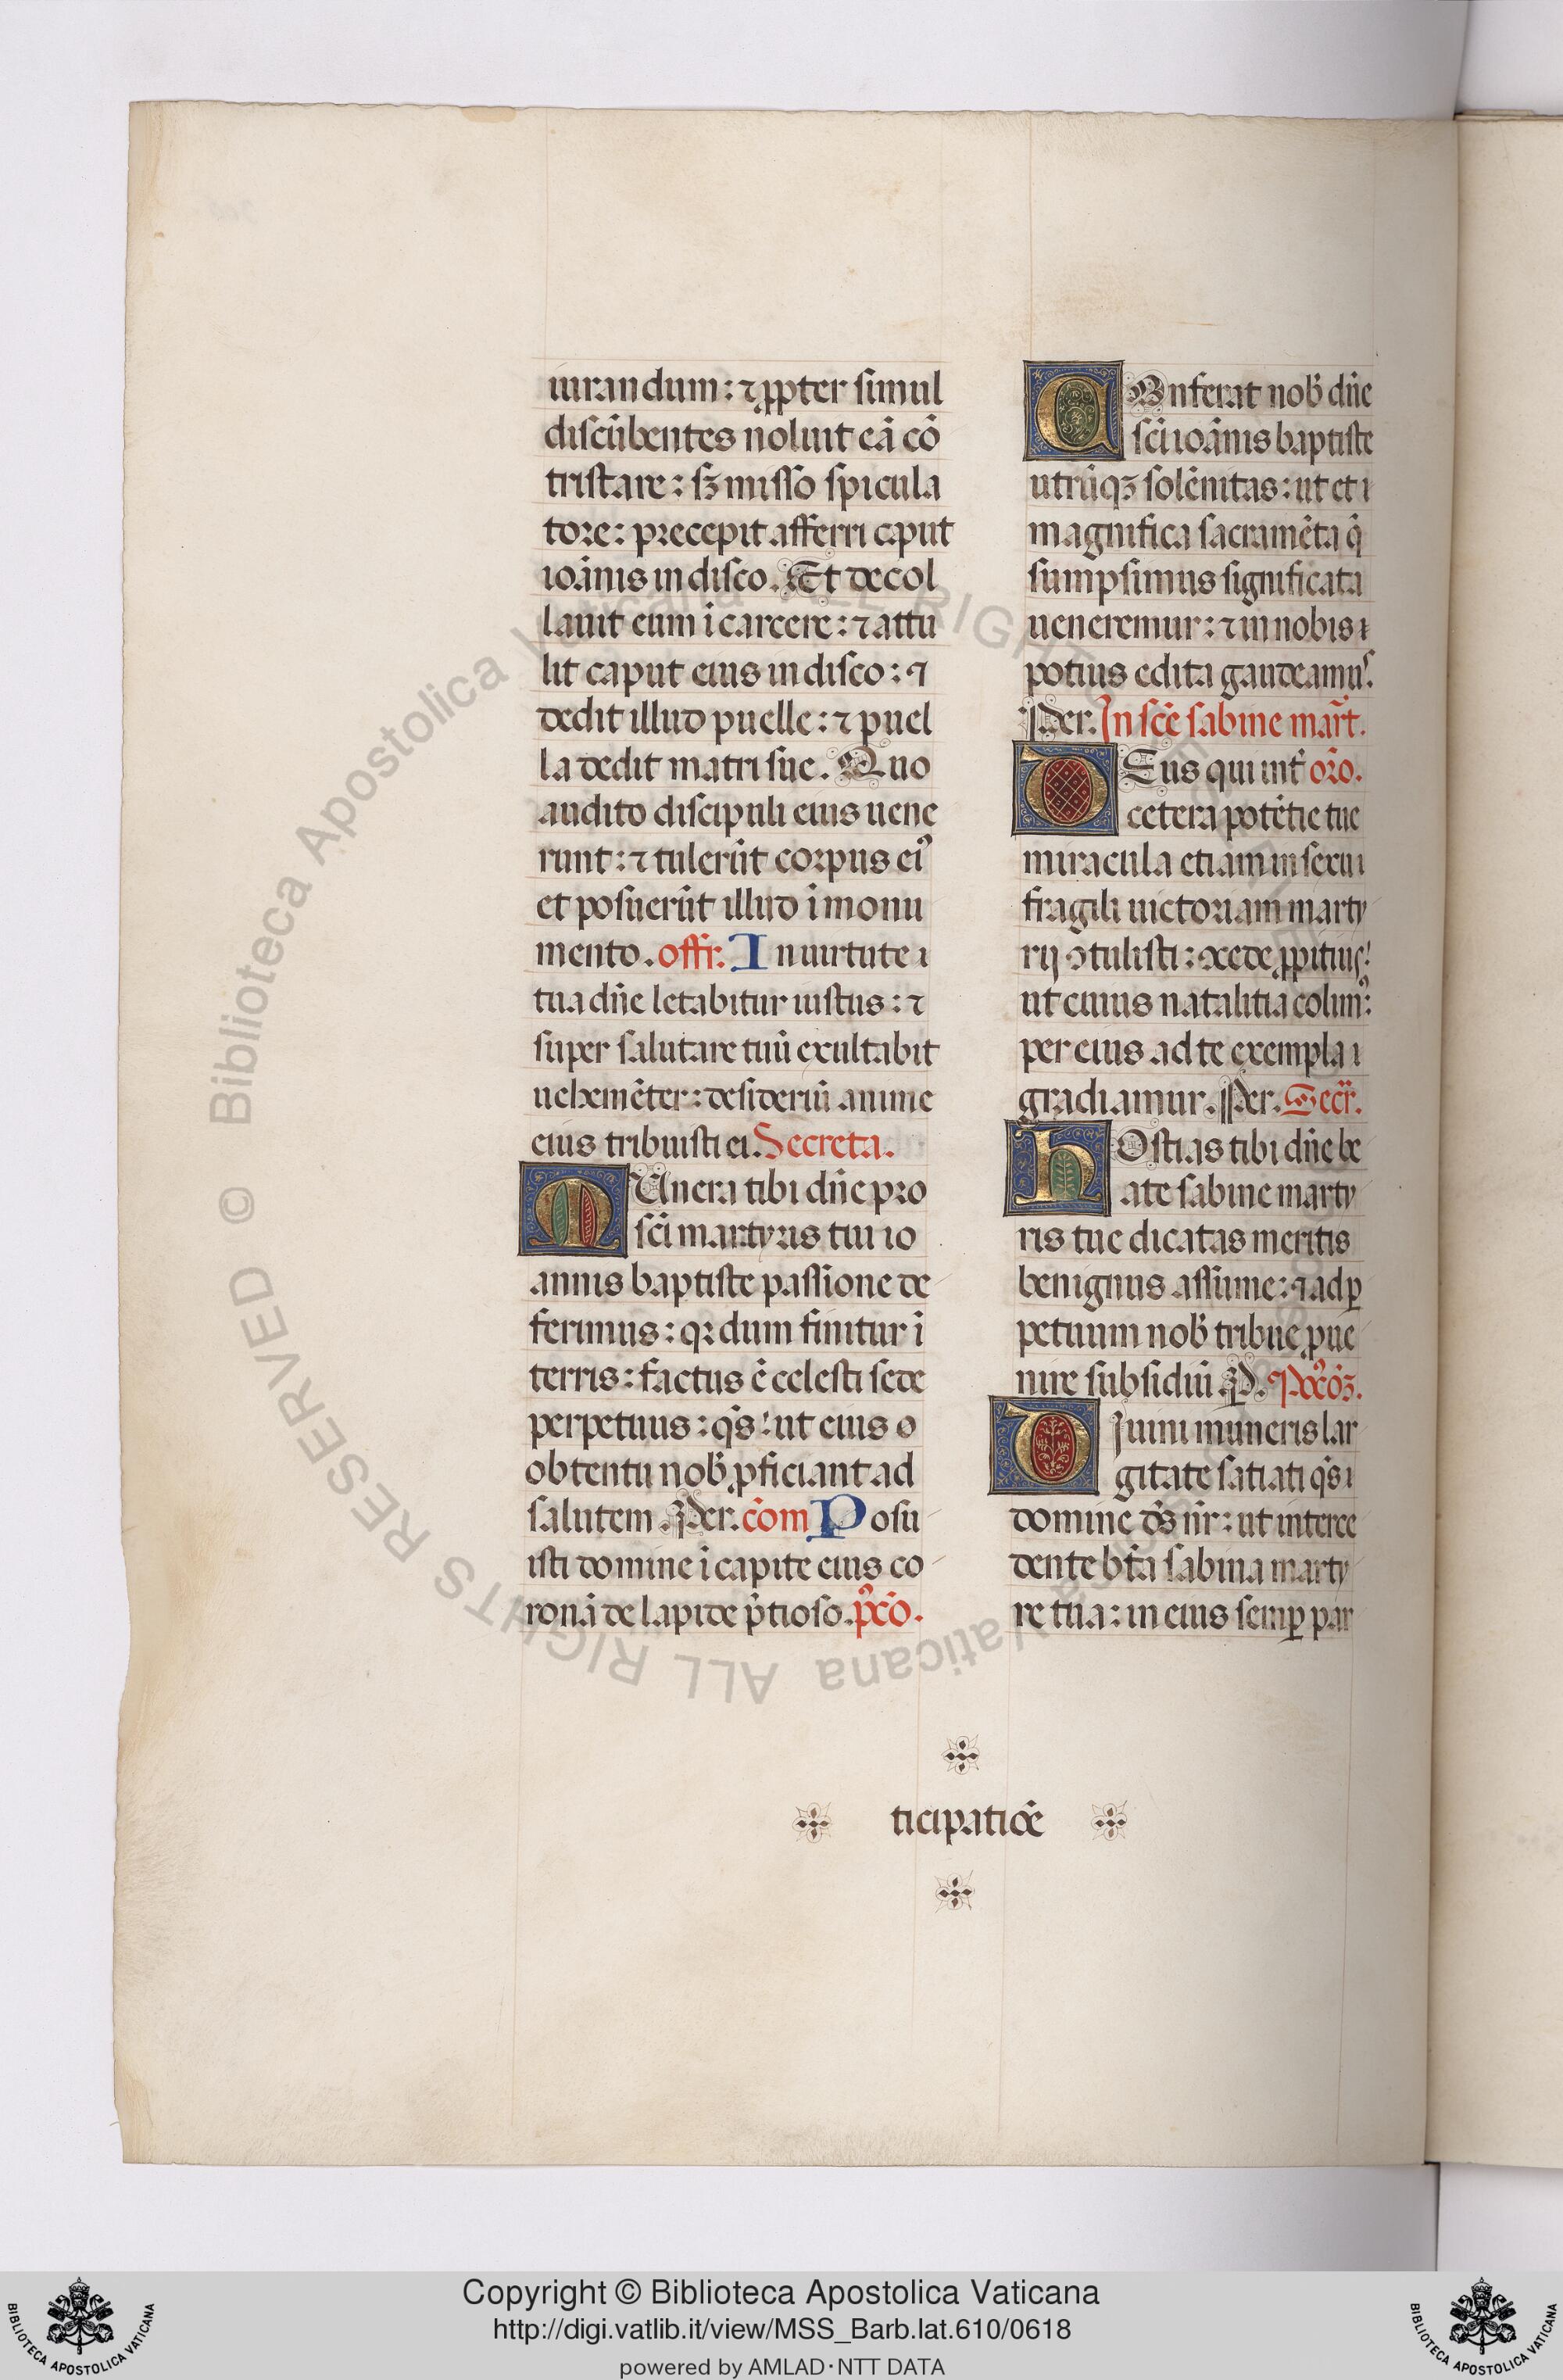 iurandum: ⁊ ꝓpter simul
discu᷑bentes noluit eã cõ
tristare: sꝫ misso spicula
tore: precepit afferri caput
ioãnis in disco. Et decol
lauit eum ĩ carcere: ⁊ attu
lit caput eius in disco: ⁊
dedit illud puelle: ⁊ puel
la dedit matri sue. Quo
audito discipuli eius uene
runt: ⁊ tulerũt corpus eiꝰ
et posuerũt illud ĩ monu
mento. offr. In uirtute
tua dñe letabitur iustus: ⁊
super salutare tuũ exultabit
uehemẽter: desideriũ anime
eius tribuisti ei. Secreta.
MUnera tibi dñe pro
sc̃i martyris tui io
annis baptiste passione de
ferimus: qꝛ dum finitur ĩ
terris: factus ẽ celesti sede
perpetuus: qs̃: ut eius o
obtentu nob̃ ꝓficiant ad
salutem. Per. cõm Posu
isti domine ĩ capite eius co
ronã de lapide p̃tioso. pꝰcõ.
COnferat nob̃ dñe
sc̃i ioãnis baptiste
utrũqꝫ solẽnitas: ut et
magnifica sacramẽta q̃
sumpsimus significata
ueneremur: ⁊ in nobis
potius edita gaudeamuˢ.
Per. In sc̃e sabine mar̃t.
DEus qui int̃ or̃o.
cetera potẽtie tue
miracula etiam in sexu
fragili uictoriam marty
rij ↄtulisti: ↄcede ꝓpitius:
ut cuius natalitia colimꝰ:
per eius ad te exempla
gradiamur. Per. Secr̃.
HOstias tibi dñe be
ate sabine marty
ris tue dicatas meritis
benignus assume: ⁊ ad ꝑ
petuum nob̃ tribue ꝓue
nire subsidiũ. P. Pꝰcõꝫ.
DIuini muneris lar
gitate satiati qs̃
domine ds̃ nr̃: ut interce
dente bt̃a sabina marty
re tua: in eius semꝑ par
ticipatiõe
Copyright © Biblioteca Apostolica Vaticana
http://digi.vatlib.it/view/MSS_Barb.lat.610/0618
powered by AMLAD·NTT DATA
BIBLIOTECA APOSTOLICA VATICANA
BIBLIOTECA APOSTOLICA VATICANA
© Biblioteca Apostolica Vaticana ALL RIGHTS RESERVED